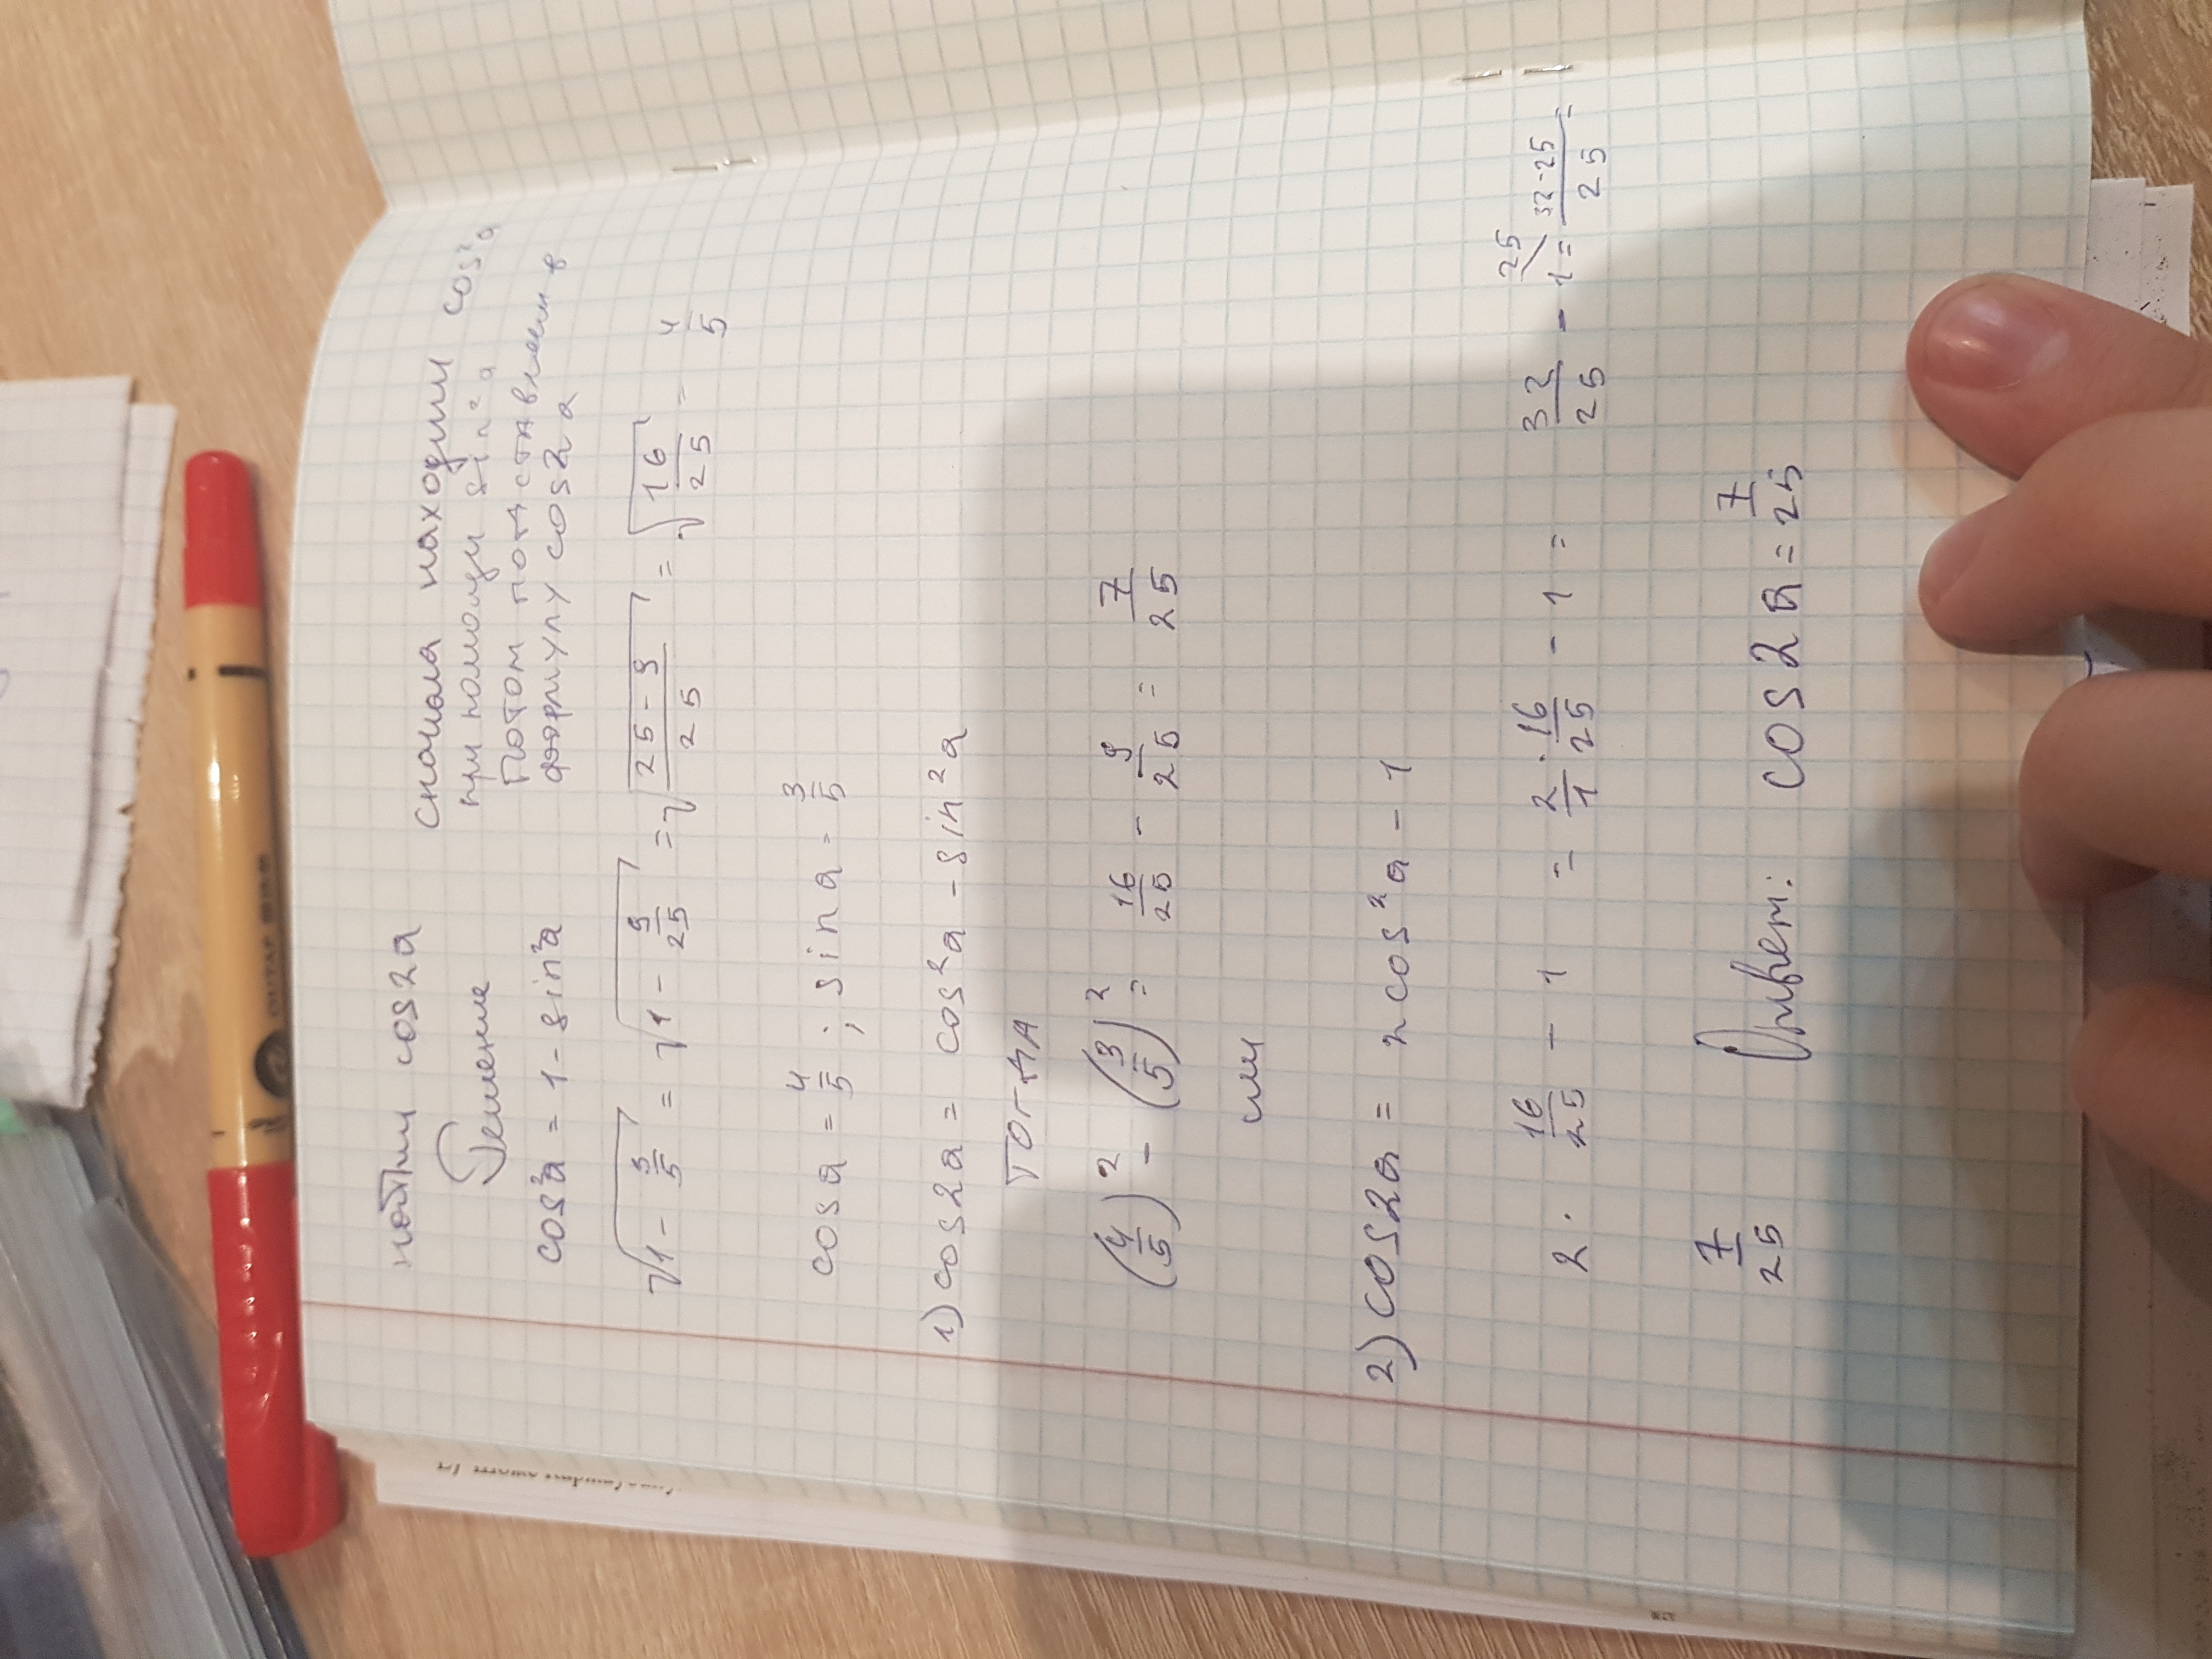 найти cos2a
Решение
сначала находим cos²a
при помощи sin²a
Потом подставляем в
формулу cos2a
cos²a = 1 - sin²a
√(1 - 3/5) = √(1 - 9/25) = √((25-9)/25) = √(16/25) = 4/5
cos a = 4/5 ; sin a = 3/5
1) cos2a = cos²a - sin²a
тогда
(4/5)² - (3/5)² = 16/25 - 9/25 = 7/25
или
2) cos2a = 2cos²a - 1
2 · 16/25 - 1 = 2/1 · 16/25 - 1 = 32/25 - 1\25 = (32-25)/25 =
7/25 Ответ: cos2a = 7/25